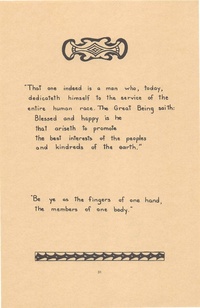 "That one indeed is a man who, today,
dedicateth himself to the service of the
entire human race. The Great Being saith:
Blessed and happy is he
that ariseth to promote
the best interests of the peoples
and kindreds of the earth."
"Be ye as the fingers of one hand,
the members of one body."